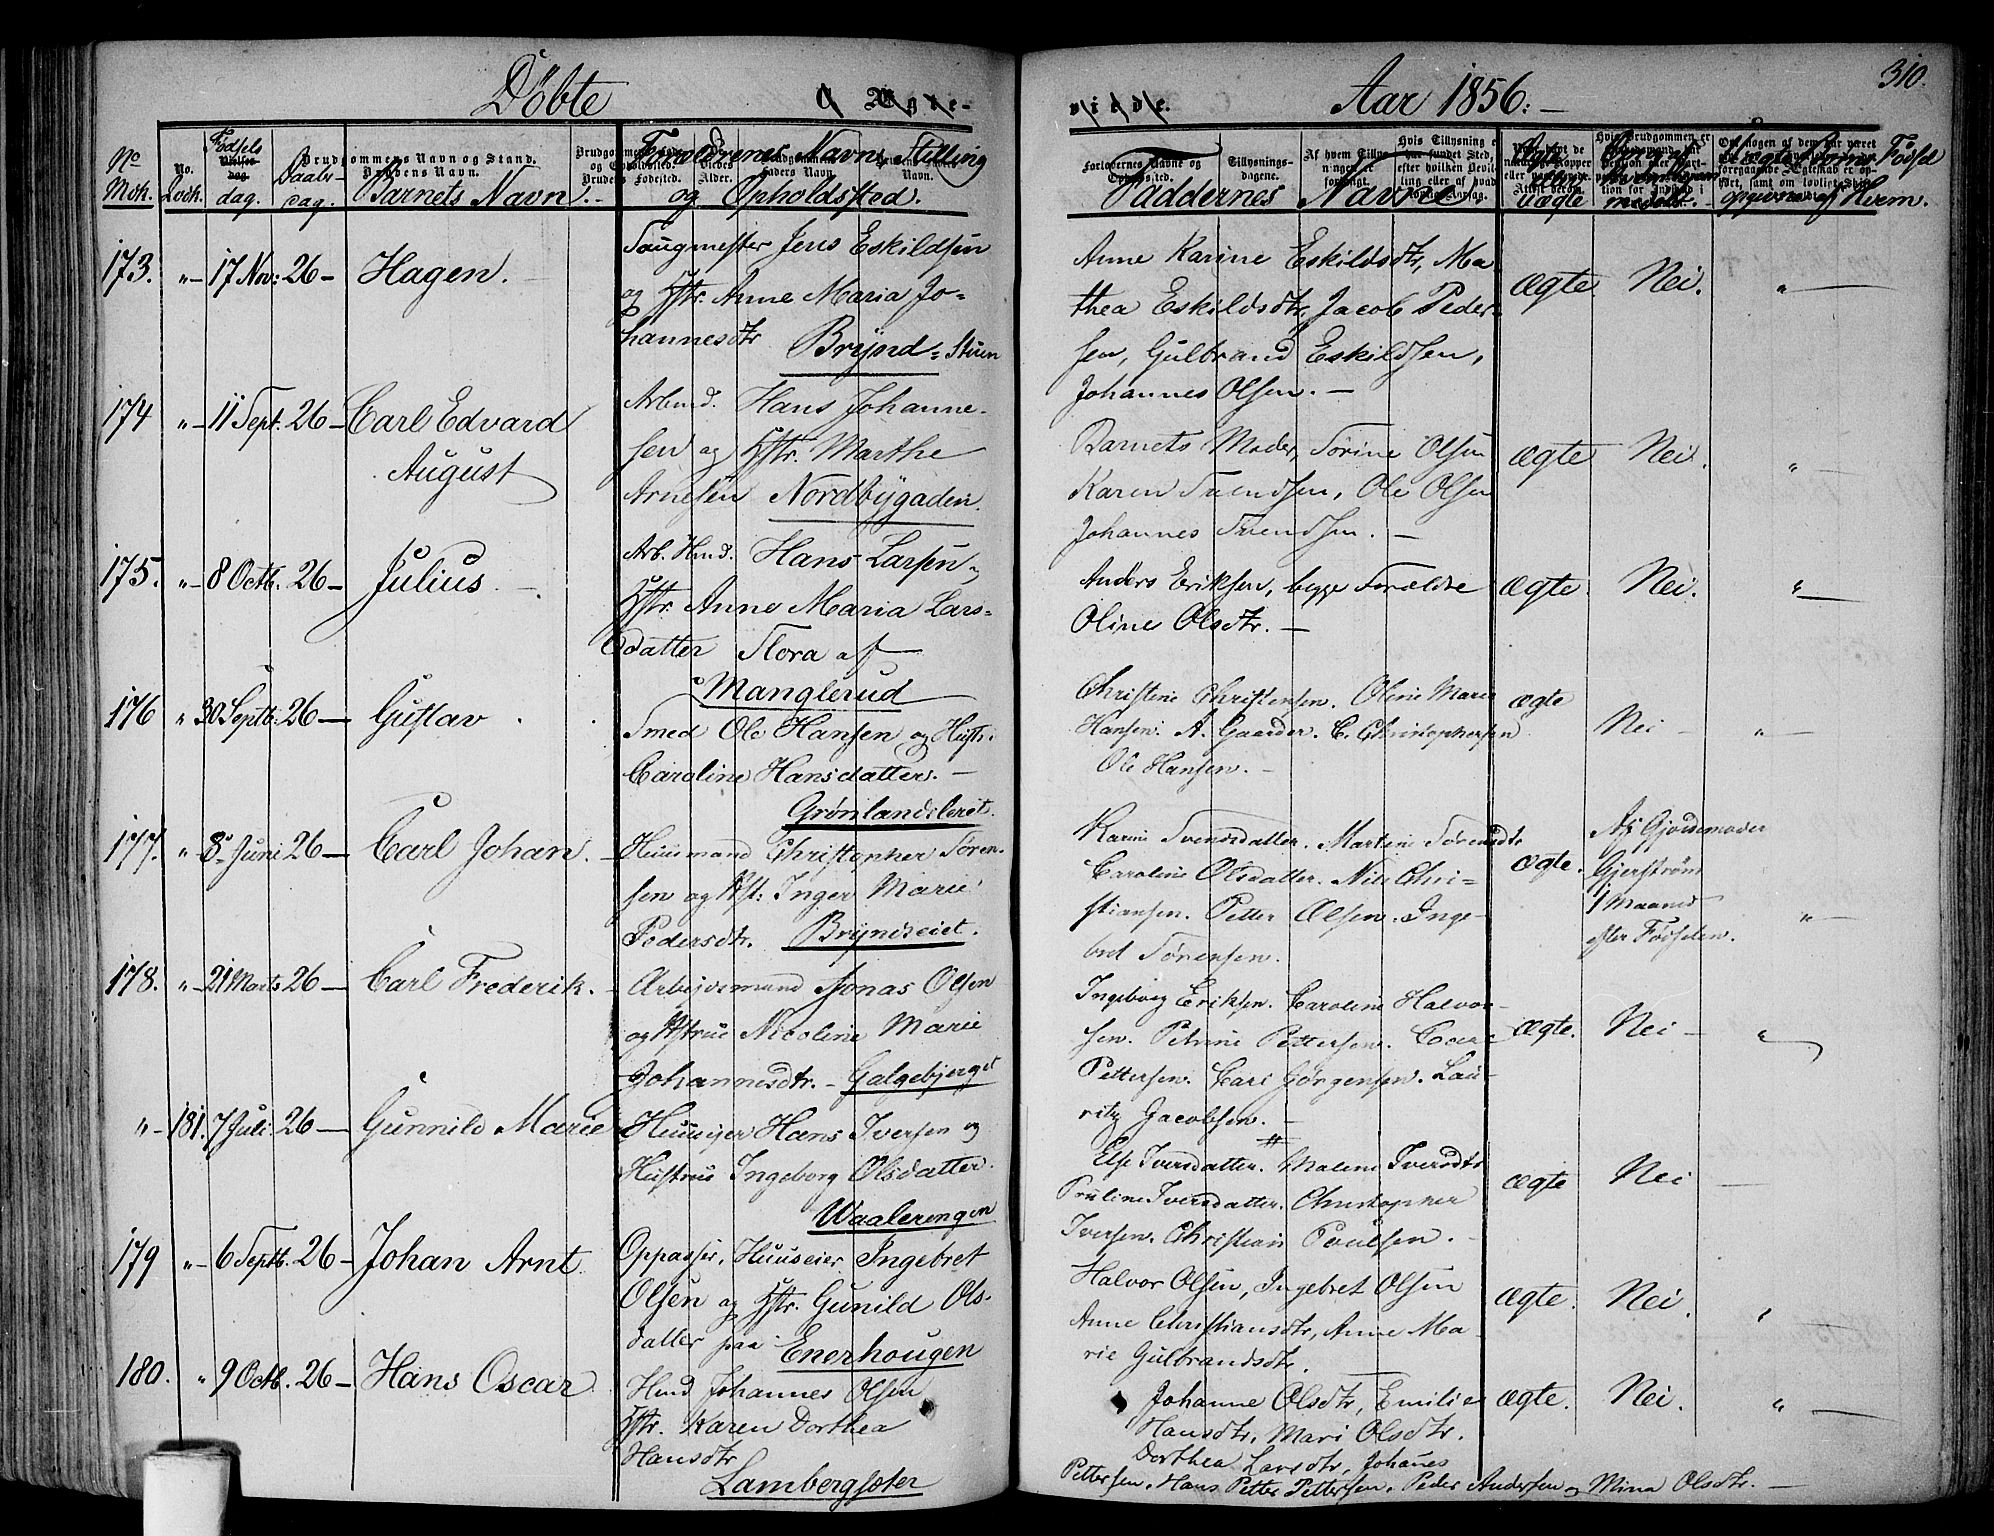 Døbte
Aar 1856.
310.
No Mck. No. Qock. Fødsels dag. Daabs dag. Barnets Navn. Forældrenes Navn, Stilling og Opholdssted.
Faddernes Navne
173. "- 17 Nov: 26- Hagen.
Saugmester Jens Eskildsen
og Hstr. Anne Maria Jo-
hannesdtr Brynd-Stuen
Anne Karine Eskildsdtr, Ma-
thea Eskildsdtr, Jacob Peder-
sen, Gulbrand Eskildsen,
Johannes Olsen. -
ægte. Nei. "
174 "- 11 Sept. 26- Carl Edvard
August
Arbmd. Hans Johanne-
sen og Hstr. Marthe
Arnesen Nordbygaden.
Barnets Moder, Sørine Olsen
Karen Svendsen, Ole Olsen
Johannes Svendsen. -
ægte Nei. "
175. "- 8 Octb. 26- Julius. -
Arb. Hmd. Hans Larsen og
Hstr. Anne Maria Lars-
datter Flora af
Manglerud
Anders Eriksen, begge Forældre
Oline Olsdtr. -
ægte. Nei. "
176 " 30 Septb. 26- Gustav.
Smed Ole Hansen og Hustr.
Caroline Hansdatter. -
Grønlandsleret.
Christine Christensen. Oline Marie
Hansen. A. Gaarder. C. Christophersen
Ole Hansen. -
ægte Nei - "
177. " 8de Juni 26- Carl Johan. -
Huusmand Christopher Søren-
sen og Hst: Inger Marie
Pedersdtr. Bryndseiet.
Karen Svensdatter. Martine Sørensdtr.
Caroline Olsdatter. Nils Chri-
stiansen. Petter Olsen. Inge-
bret Sørensen.
ægte.
Af Gjordemoder
Gjerstrøm
1 Maaned
efter Fødselen.
"
178. "- 21 Marts 26- Carl Frederik. -
Arbejdsmand Jonas Olsen
og Hstrue Nicoline Marie
Johannesdtr. - Galgebjerget
Ingeborg Eriksen. Caroline Halvor-
sen. Petrine Pettersen. Carl
Pettersen. Carl Jørgensen. Lau-
ritz Jacobsen. -
ægte. Nei - "
"- 181. 7 Juli 26- Gunnild Marie
Huuseier Hans Iversen og
Hustrue Ingeborg Olsdatter.
Waalerengen
Else Iversdatter. Malene Iversdtr
Pauline Iversdatter. Christopher
Iversen. Christian Poulsen. -
ægte Nei -
179 "- 6 Septb. 26- Johan Arnt
Oppasser, Huuseier Ingebret
Olsen og Hstr. Gunild Ols-
datter paa Enerhougen
Halvor Olsen, Ingebret Olsen
Anne Christiansdtr, Anne Ma-
rie Gulbrandsdtr.
ægte. Nei. "
180. " 9 Octb. 26- Hans Oscar
Hmd Johannes Olsen
Hstr. Karen Dorthea
Hansdtr
Lambergsæter
Johanne Olsdtr, Emilie
Hansdtr, Mari Olsdtr.
Dorthea Larsdtr, Johanes
Pettersen. Hans Petter Pettersen. Peder Andersen og Mina Olsdtr. -
ægte. Nei. "